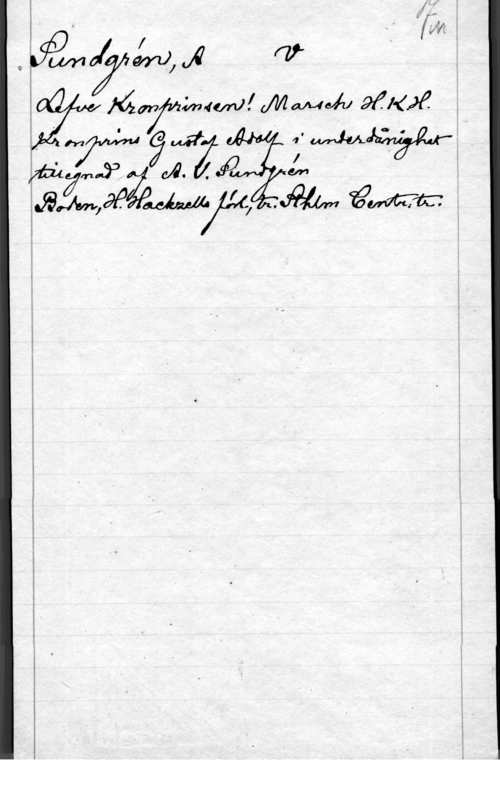 7m
Sundgrén, A V
Lefve Kronprinsen! Marsch H.K.H.
Kronprins Gustaf Adolf i underdånighet
tillegnad af A. V. Sundgrén
Boden, H. Hackzells förl., tr: Sthlm Centr. tr.